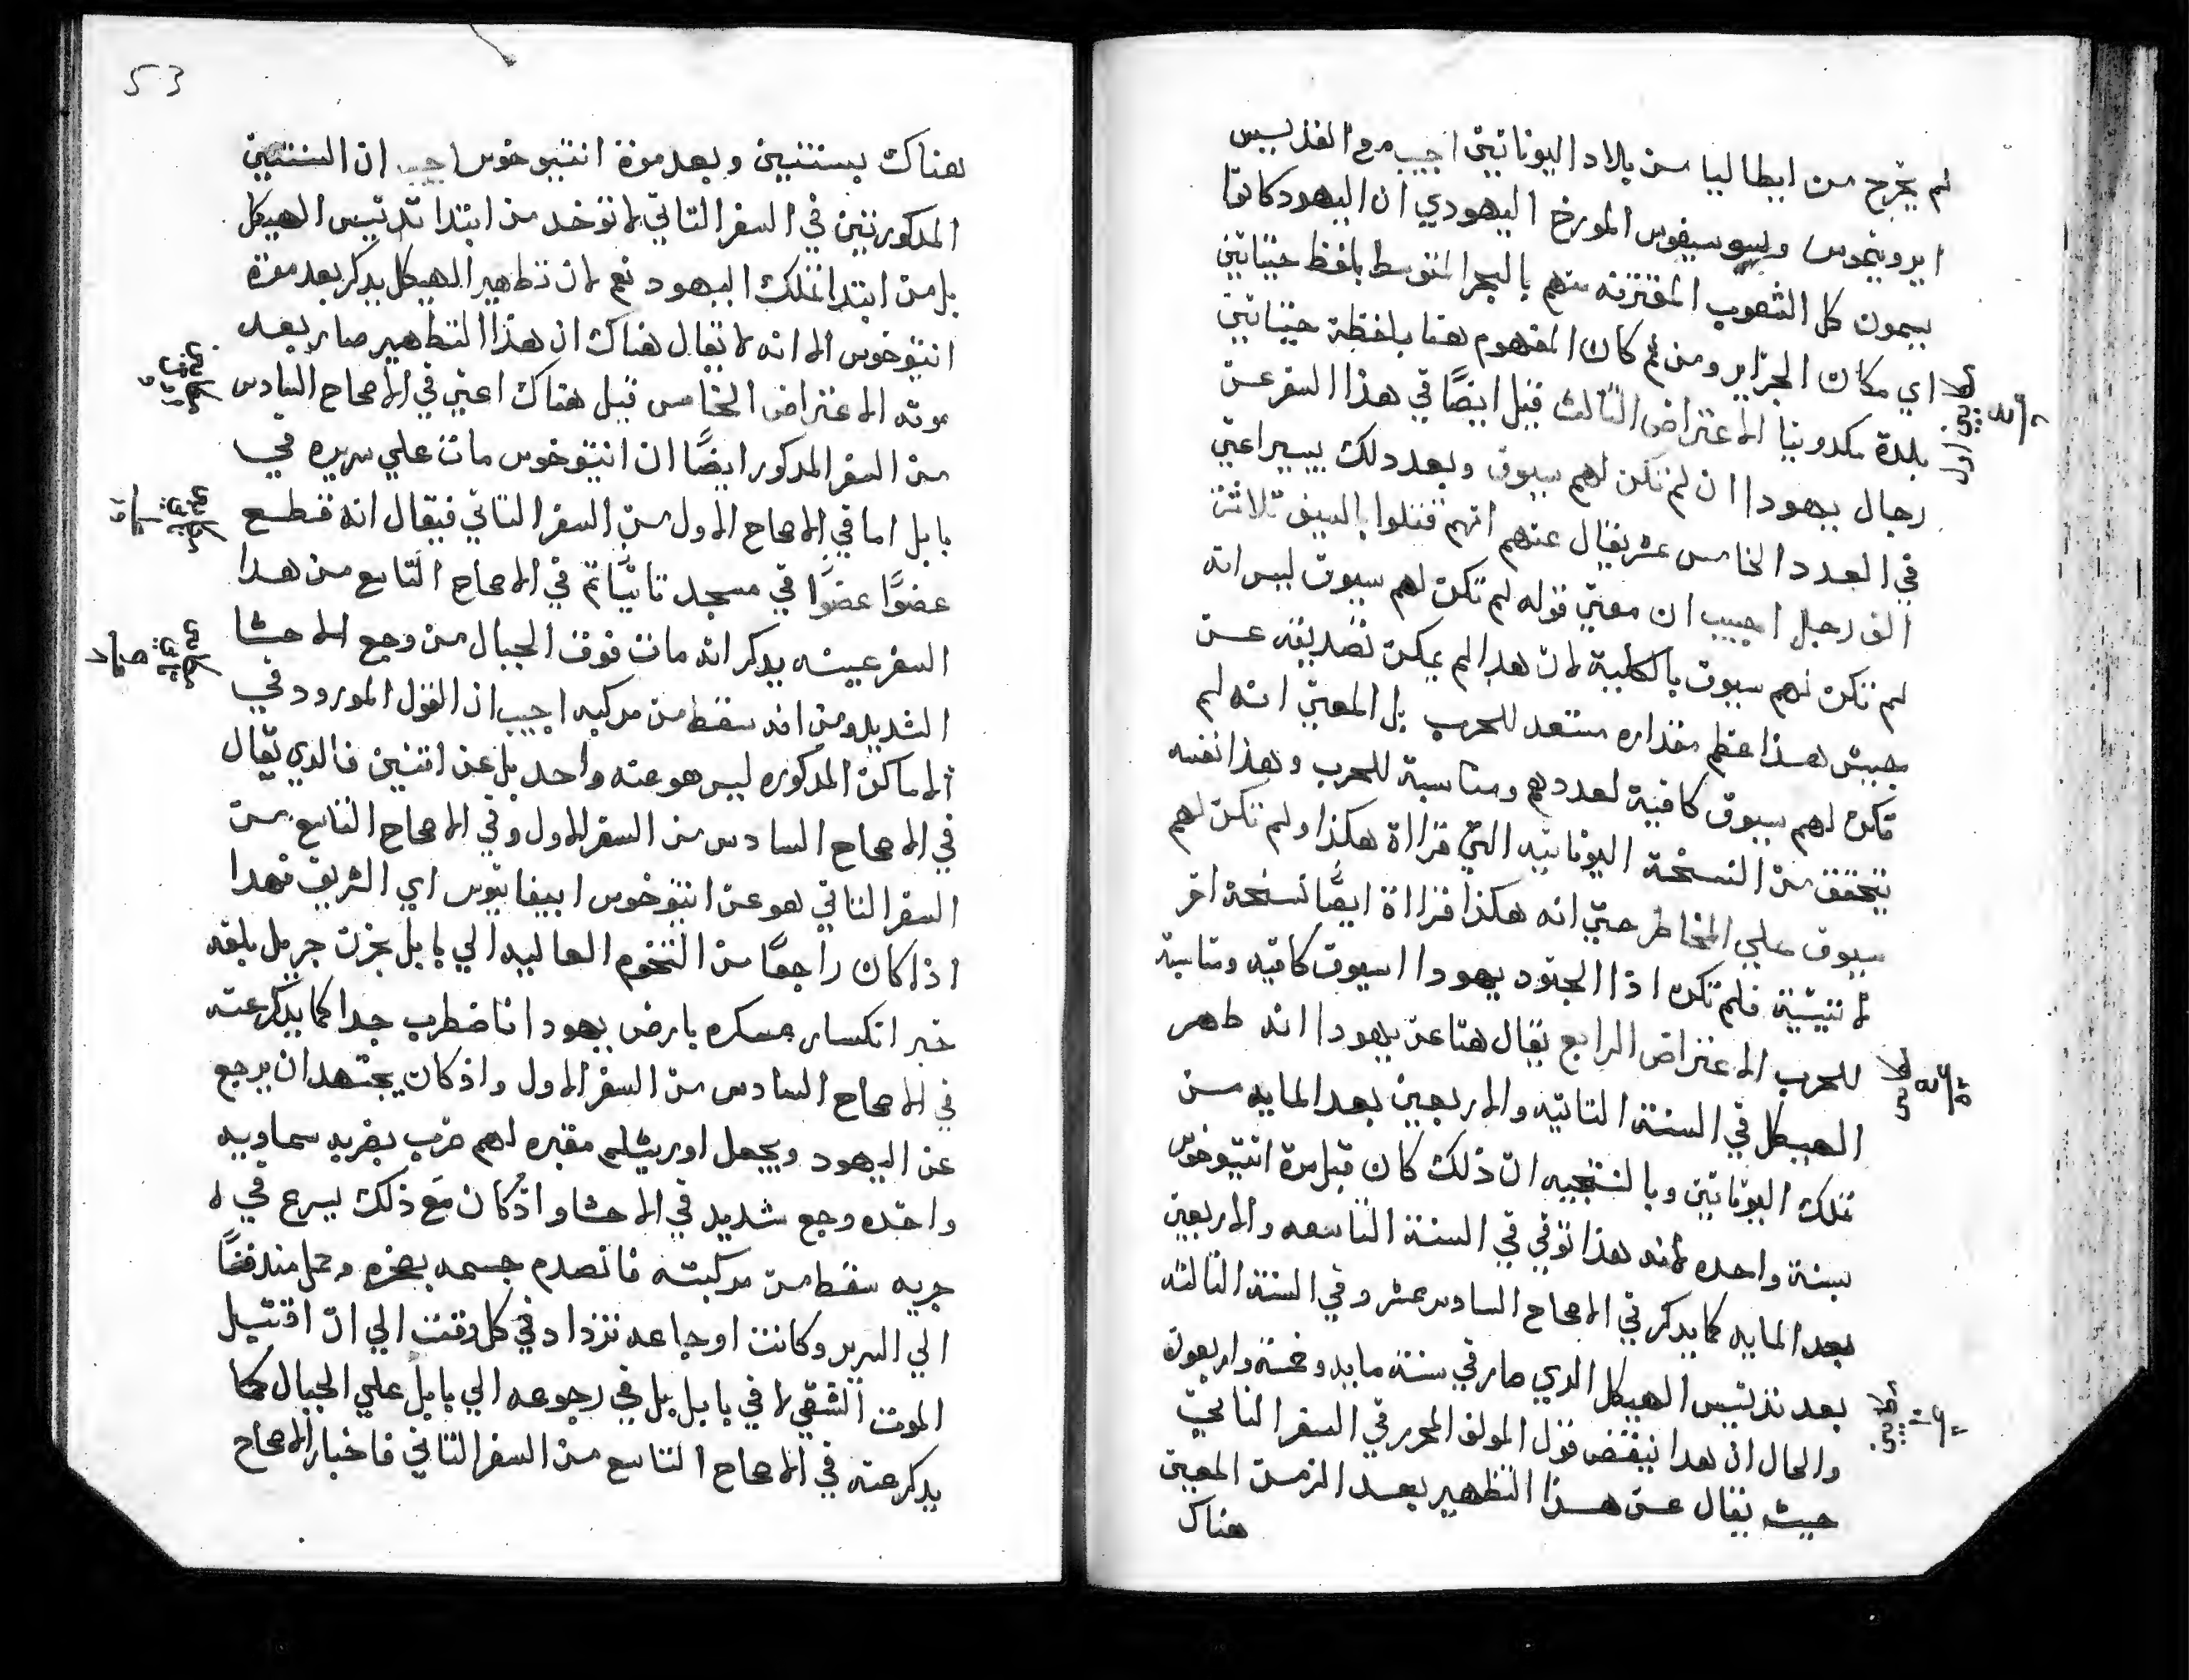 لم يخرج من ايطاليا من بلاد اليونانيين اجيب مع القديس
ايرونيموس ويوسيفوس المورخ اليهودي ان اليهود كانوا
يسمون كل الشعوب المفترقه منهم بالبحر المتوسط بلفظ حيتانيين
اي مكان الجزاير ومن ثم كان المفهوم هنا بلفظة حيتانيين
بلدة مكدونيا الاعتراض الثالث قيل ايضًا في هذا السفر عن
رجال يهودا ان لم تكن لهم سيوف وبعد دلك بيسير اعني
في العدد الخامس عشر يقال عنهم انهم قتلوا بالسيف ثلاثة
الف رجل اجيب ان معني قوله لم تكن لهم سيوف ليس انه
لم تكن لهم سيوف بالكلية لان هدا لم يمكن تصديقه عن
جيش هذا عظم مقداره مستعد للحرب بل المعني انه لم
تكن لهم سيوف كافية لعددهم ومناسبة للحرب وهذا نفسه
يتحقق من النسخة اليونانيه التي قراأة هكذا ولم تكن لهم
سيوف علي الخاطر حتي انه هكذا قراأة ايضًا نسخة اخر
لاتينية فلم تكن اذا الجنود يهودا اسيوف كافيه ومناسبة
للحرب الاعتراض الرابع يقال هنا عن يهودا انه طهر
الهيكل في السنة التانيه والاربعين بعد المايه من
تملك اليونانيين وبالنتيجيه ان ذلك كان قبل موة انتيوخوس
بسنة واحده لانه هذا توفي في السنة التاسعه والاربعين
بعد المايه كما يدكر في الاصحاح السادس عشر وفي السنة الثالثه
بعد تدنيس الهيكل الدي صار في سنة مايه وخمسة واربعون
والحال ان هدا ينقض قول المولف المحرر في السفر الثاني
حيث يقال عن هذا التطهير بعد الزمن المعين
هناك
53
هناك بسنتين وبعد موة انتيوخوس اجيب ان السنتين
المدكورتين في السفر التاني لا توخد من ابتدا تدنيس الهيكل
بل من ابتدا تملك اليهود نعم لان تطهير الهيكل يدكر بعد موة
انتيوخوس الا انه لا يقال هناك ان هذا التطهير صار بعد
موته الاعتراض الخامس قيل هناك اعني في الاصحاح السادس
من السفر المدكور ايضًا ان انتيوخوس مات علي سريره في
بابل اما في الاصحاح الاول من السفر التاني فيقال انه قطع
عضوًا عضوًا في مسجد تانيًا تم في الاصحاح التاسع من هدا
السفر عينه يدكر انه مات فوق الجبال من وجع الاحشا
الشديد ومن انه سقط من مركبه اجيب ان القول المورود في
الاماكن المدكوره ليس هو عنه واحد بل عن اتنين فالدي يقال
في الاصحاح السادس من السفر الاول وفي الاصحاح التاسع من
السفر التاني هو عن انتيوخوس ابيفانيوس اي الشريف فهدا
اذا كان راجعًا من التخوم العاليه الي بابل بحزن جزيل بلغه
خبر انكسار عسكره بارض يهودا فاضطرب جدا كما يدكر عنه
في الاصحاح السادس من السفر الاول واذ كان يجتهد ان يرجع
عن اليهود ويجعل اوريشليم مقبره لهم ضرب بضربه سماويه
واخده وجع شديد في الاحشا واذ كان مع ذلك يسرع في
جريه سقط من مركبته فانصدم جسمه بصخره وحمل مندفقًا
الي السرير وكانت اوجاعه تزداد في كل وقت الي ان اقتبل
الموت الشقي لا في بابل بل في رجوعه الي بابل علي الجبال كما
يدكر عنه في الاصحاح التاسع من السفر التاني فاخبار الاصحاح